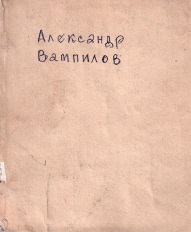 Александр
Вампилов